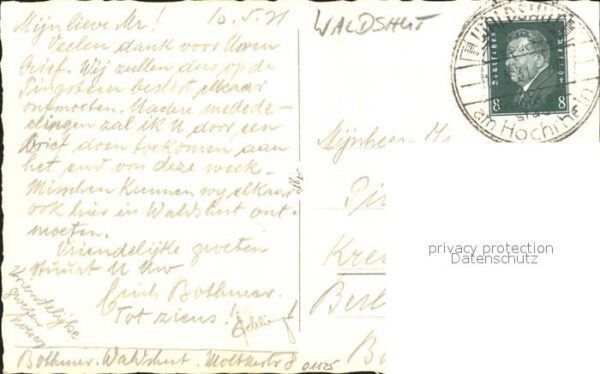 Mijn lieve Mr! 10.5.31
Veelen dank voor Uwen
Brief. Wij zullen dus op de
beslist elkaar
ontmoeten. Nadere mede-
deelingen zal ik U door een
Brief doen toekomen aan
het end van deze week.
Misschien kunnen wij elkaar
ook hier in Waldshut ont-
moeten.
Vriendelijke groeten
stuurt U Uw
Erich Bothmer.
Tot ziens!
vriendelijke
groeten
Bothmer. Waldshut. Moltkestr 8
01125
WALDSHUT
WALDSHUT
am Hochrhein
Deutsches Reich
8 8
Mijnheer
Kre
Berl
privacy protection
Datenschutz